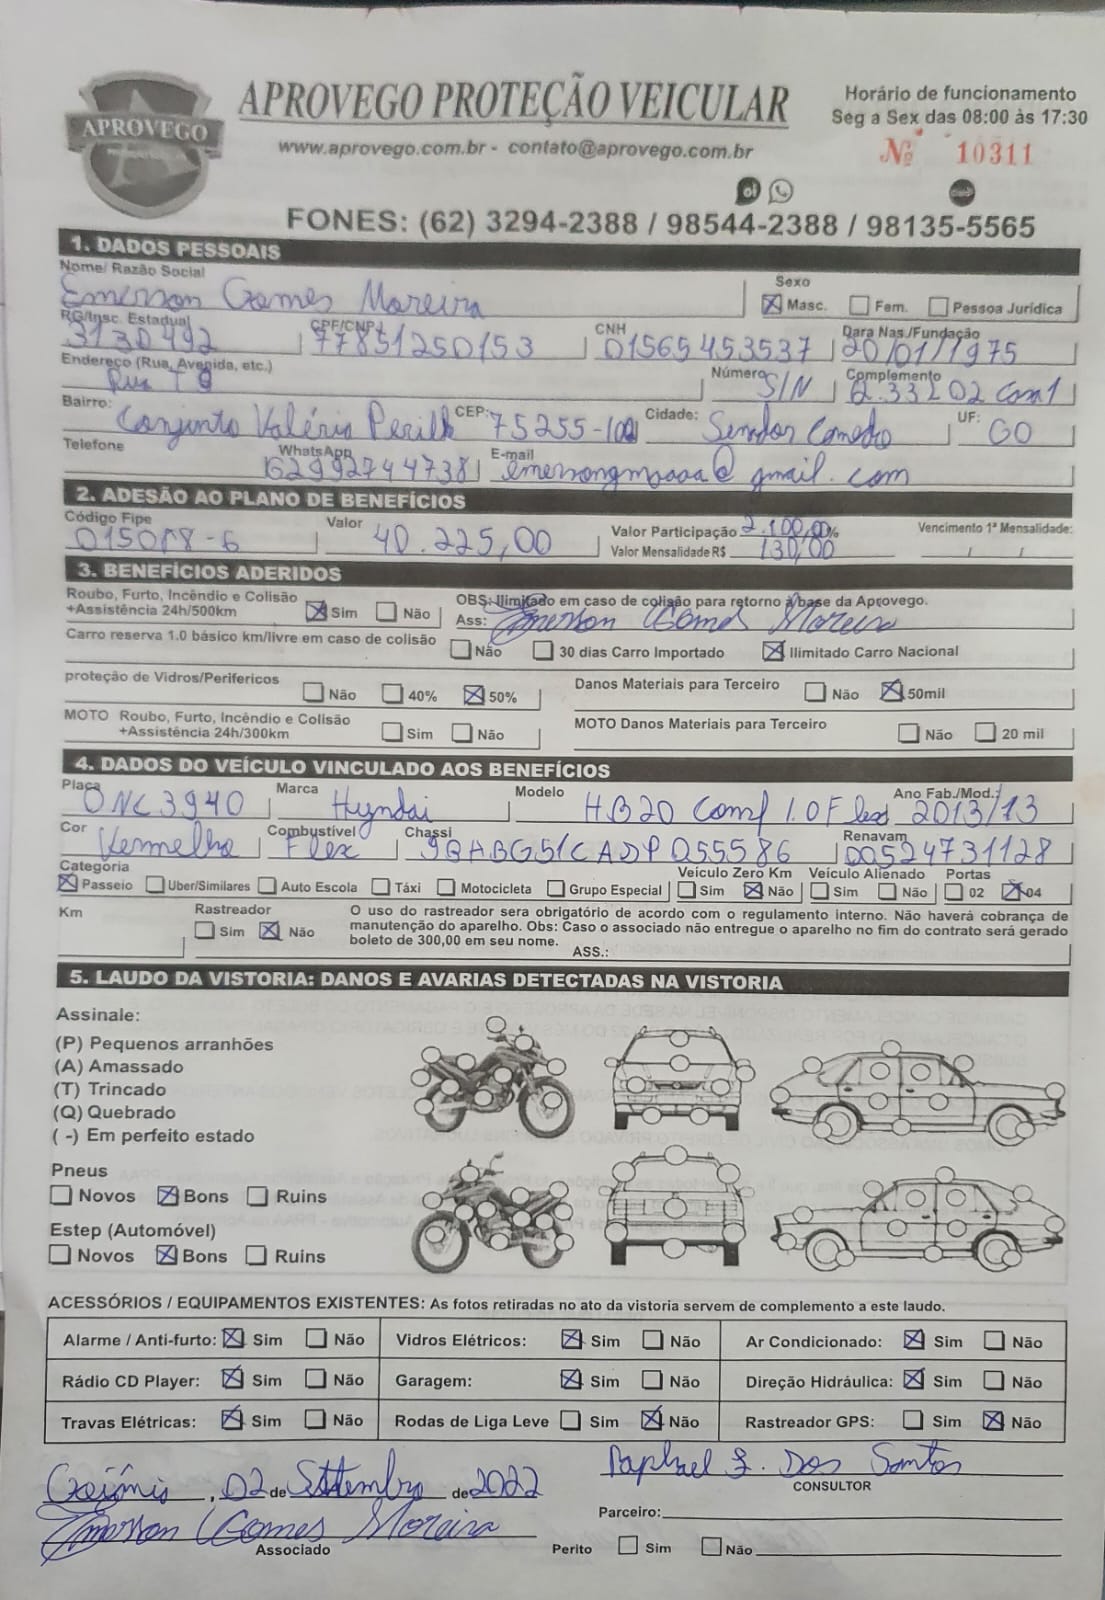 APROVEGO
APROVEGO PROTEÇÃO VEICULAR
www.aprovego.com.br - contato@aprovego.com.br
Horário de funcionamento
Seg a Sex das 08:00 às 17:30
Nº 10311
oi
FONES: (62) 3294-2388 / 98544-2388 / 98135-5565
1. DADOS PESSOAIS
Nome/ Razão Social
Emerson Gomes Moreira
Sexo
Masc. Fem. Pessoa Jurídica
RG/Insc. Estadual CPF/CNPJ CNH Dara Nas./Fundação
3130492 77851250153 01565453537 20/01/1975
Endereço (Rua, Avenida, etc.) Número Complemento
Rua T 9 S/N Q.33 L02 Casa1
Bairro: Conjunto Valéria Perillo CEP: 75255-100 Cidade: Senador Canedo UF: GO
Telefone WhatsApp E-mail
62992744738 @gmail.com
2. ADESÃO AO PLANO DE BENEFÍCIOS
Código Fipe Valor Valor Participação 2.100,00% Vencimento 1ª Mensalidade:
40.225,00 Valor Mensalidade R$ 130,00 / /
3. BENEFÍCIOS ADERIDOS
Roubo, Furto, Incêndio e Colisão
+Assistência 24h/500km Sim Não
OBS: Ilimitado em caso de colisão para retorno à base da Aprovego.
Ass: Emerson Gomes Moreira
Carro reserva 1.0 básico km/livre em caso de colisão Não 30 dias Carro Importado Ilimitado Carro Nacional
proteção de Vidros/Perifericos Não 40% 50% Danos Materiais para Terceiro Não 50mil
MOTO Roubo, Furto, Incêndio e Colisão
+Assistência 24h/300km Sim Não
MOTO Danos Materiais para Terceiro Não 20 mil
4. DADOS DO VEÍCULO VINCULADO AOS BENEFÍCIOS
Placa Marca Modelo Ano Fab./Mod.:
ONC3940 Hyndai HB20 Comf 1.0 Flex 2013/13
Cor Combustível Chassi Renavam
Vermelho Flex 9BHBG51CADP055586 00524731128
Categoria Veículo Zero Km Veículo Alienado Portas
Passeio Uber/Similares Auto Escola Táxi Motocicleta Grupo Especial Sim Não Sim Não 02 04
Km Rastreador
Sim Não
O uso do rastreador sera obrigatório de acordo com o regulamento interno. Não haverá cobrança de
manutenção do aparelho. Obs: Caso o associado não entregue o aparelho no fim do contrato será gerado
boleto de 300,00 em seu nome.
ASS.:
5. LAUDO DA VISTORIA: DANOS E AVARIAS DETECTADAS NA VISTORIA
Assinale:
(P) Pequenos arranhões
(A) Amassado
(T) Trincado
(Q) Quebrado
( -) Em perfeito estado
Pneus
Novos Bons Ruins
Estep (Automóvel)
Novos Bons Ruins
ACESSÓRIOS / EQUIPAMENTOS EXISTENTES: As fotos retiradas no ato da vistoria servem de complemento a este laudo.
Alarme / Anti-furto: Sim Não Vidros Elétricos: Sim Não Ar Condicionado: Sim Não
Rádio CD Player: Sim Não Garagem: Sim Não Direção Hidráulica: Sim Não
Travas Elétricas: Sim Não Rodas de Liga Leve Sim Não Rastreador GPS: Sim Não
Goiânia, 02 de Settembro de 2022
Raphael F. Dos Santos
CONSULTOR
Emerson Gomes Moreira
Associado
Parceiro:
Perito Sim Não